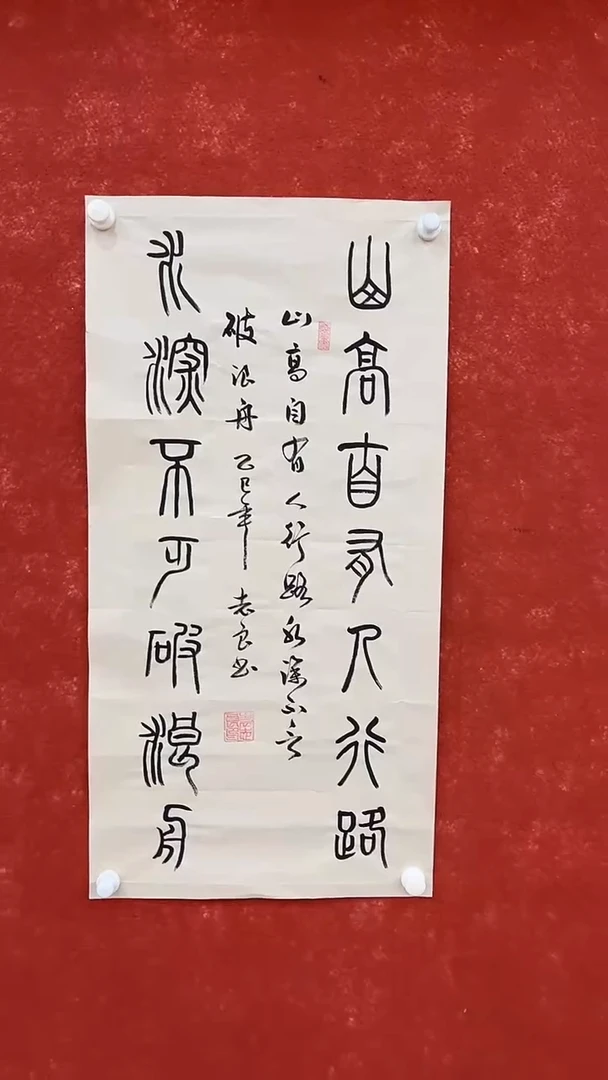 山高自有人行路
山高自有人行路水深不乏
破浪舟 乙巳年 志良书
水深不乏破浪舟